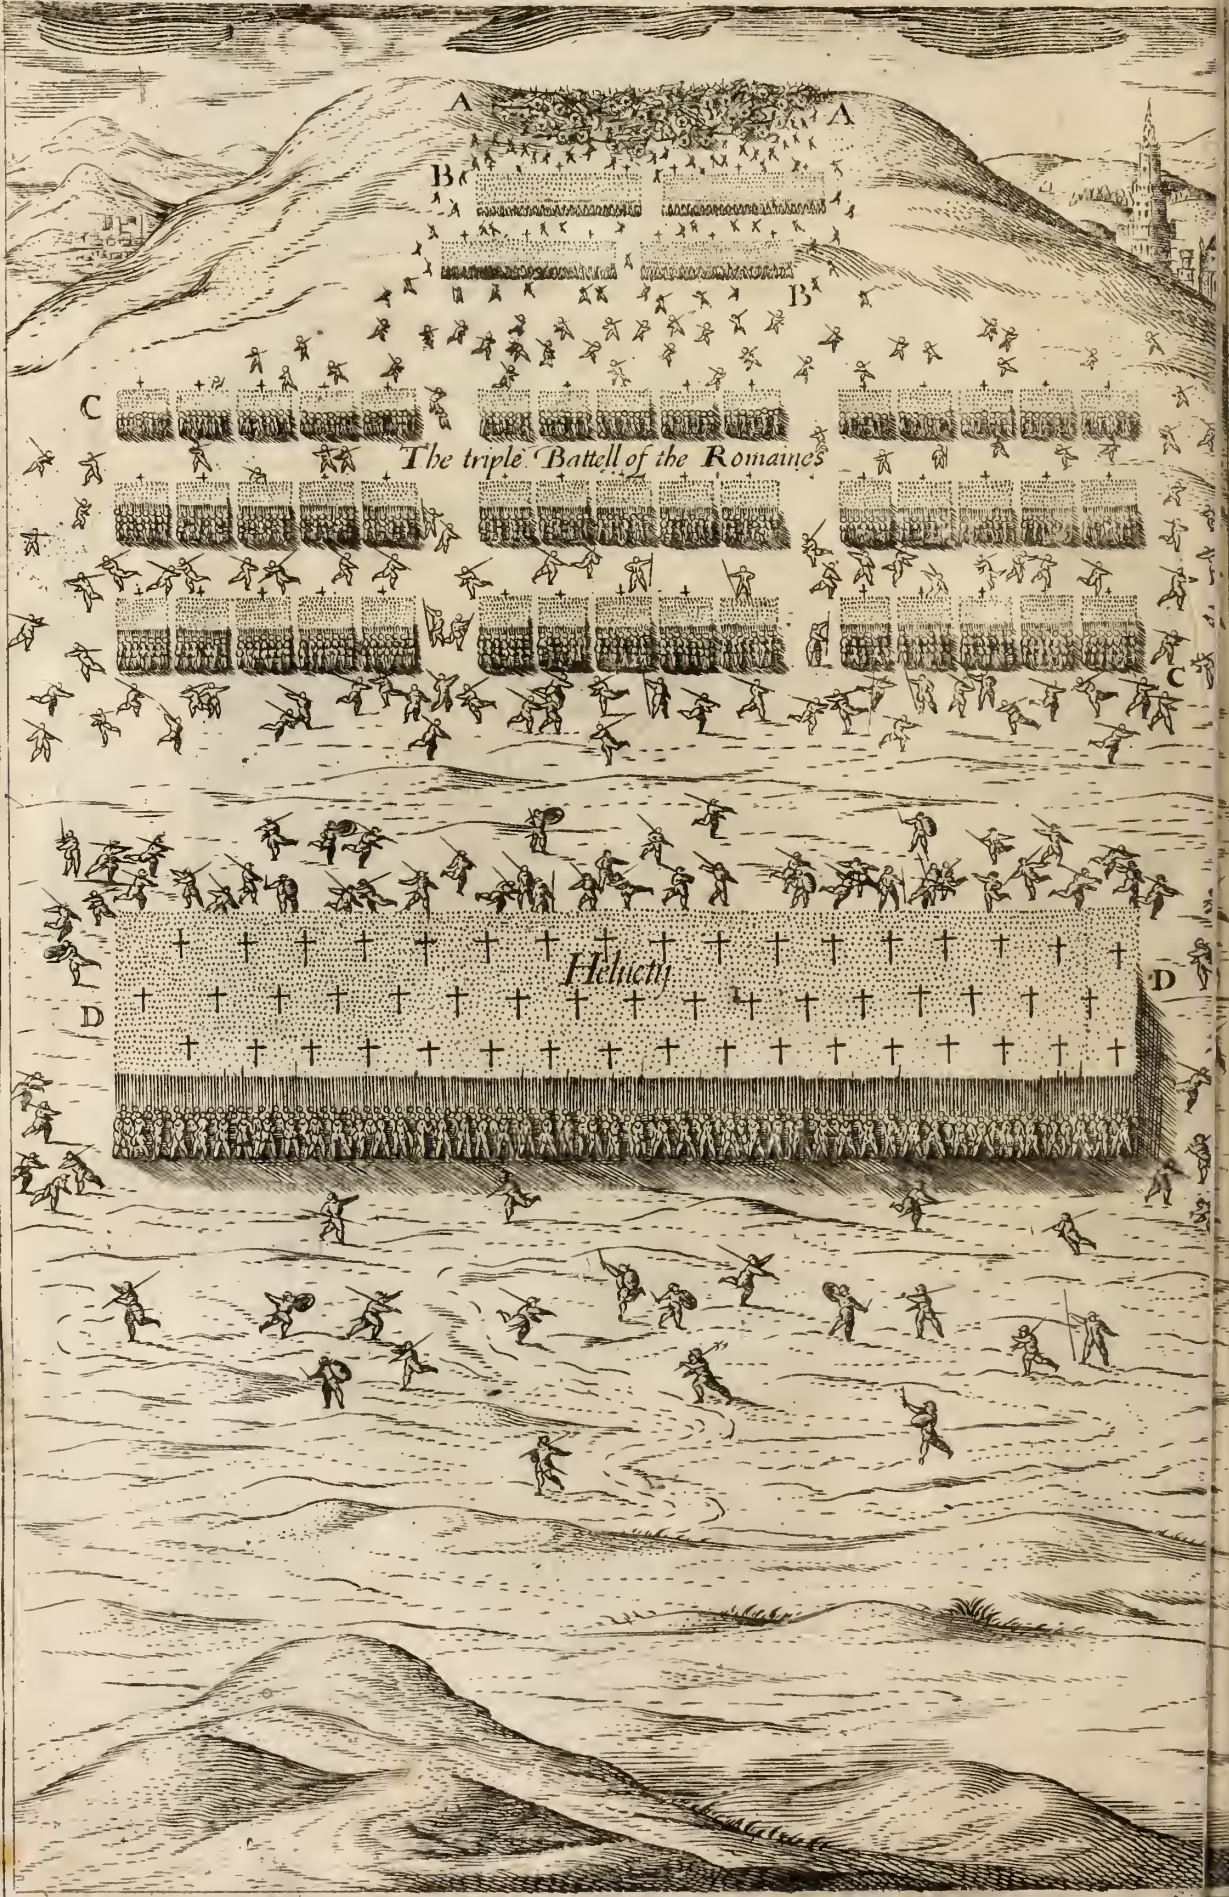 A A
B
B
C
The triple Battell of the Romaines
C
Heluetij
D
D